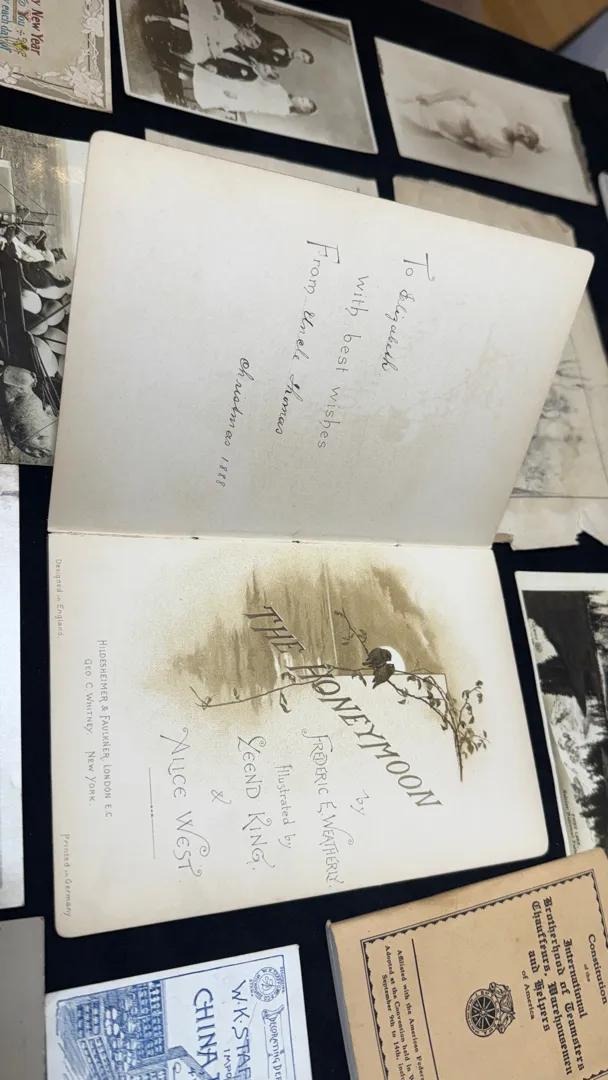 To Elizabeth
with best wishes
From Uncle Thomas
Christmas 1888
THE HONEYMOON
by
FREDERIC E. WEATHERLY.
Illustrated by
LEEND KING.
&
ALICE WEST.
HILDESHEIMER & FAULKNER, LONDON E.C
GEO. C. WHITNEY. NEW YORK.
Designed in England.
Printed in Germany
New Year
each day
Constitution
of the
International
Brotherhood of Teamsters
Chauffeurs, Warehousemen
and Helpers
of America
Affiliated with the American
Adopted at the Convention held in
September 9th to 14th,
DECORATING
W.K. STAF
CHINA